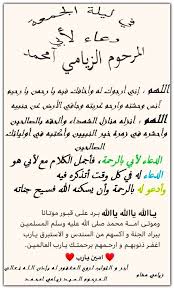 في ليلة الجمعة
دعاء لأبي
المرحوم الزيامي امحمد
اللهم ، إني أرجوك له وأخافك فيه ، اللهم ، أنر
أنس وحشته وارحم غربته وجافي الأرض عن جنبيه
اللهم ، أنزله منازل الشهداء والحقه بالصالحين
واحشره في زمرة خير النبيين وأكتبه في أوليائك
الصالحين
الدعاء لأبي بالرحمة، فأجمل الكلام مع لأبي هو
الدعاء له في كل وقت أتذكره فيه
وأدعو له بالرحمة وأن يسكنه الله فسيح جناته
يالله يالله يالله برد على قبور موتانا
وموتى امة محمد صلى الله عليه وسلم المسلمين
ببراد الجنة و اكسهم من السندس و الاستبرق يارب
اغفر ذنوبهم و ارحمهم برحمتك يارب العالمين.
امين يارب